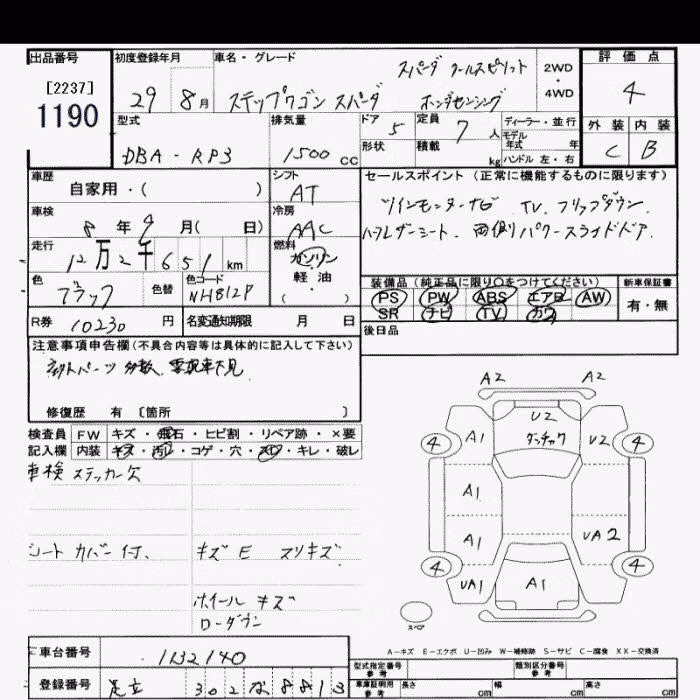 出品番号 初度登録年月 車名・グレード 評価点
[2237] 29 8月 ステップワゴン スパーダ スパーダ クールスピリット 2WD・4WD 4
1190 ホンダセンシング
型式 排気量 ドア 5 定員 7人 ディーラー・並行 外装 内装
DBA - RP3 1500cc 形状 積載 kg モデル年式 年 C B
ハンドル 左・右
車歴 シフト セールスポイント(正常に機能するものに限ります)
自家用・( ) AT ツインモニターナビ TV. フリップダウン.
車検 冷房 ハーフレザーシート. 両側パワースライドドア.
8年9月( 日) AAC
走行 燃料
12万2千651km ガソリン
軽・油
( )
色 色替 色コード 装備品(純正品に限り○をつけてください) 新車保証書
ブラック NH812P PS PW ABS エアB AW 有・無
SR ナビ TV カワ
R券 10230円 名変通知期限 月 日 後日品
注意事項申告欄(不具合内容等は具体的に記入して下さい)
社外パーツ多数、要現車下見
修復歴 有〔箇所 〕
検査員 FW キズ・飛石・ヒビ割・リペア跡・×要
記入欄 内装 キズ・汚レ・コゲ・穴・スレ・キレ・破レ
車検ステッカー欠
シートカバー付、 キズ E スリキズ
ホイールキズ
ローダウン
A2 A2
4 A1 U2 U2 4
ダッチャク
A1
A1 UA2
4 UA1 A1 4
スペア
A-キズ E-エクボ U-凹み W-補修跡 S-サビ C-腐食 XX-交換済
車台番号 1132140 型式指定番号 参考 類別区分番号 参考
登録番号 足立 302 な 8813 車庫証明用 参考 長さ cm 幅 cm 高さ cm